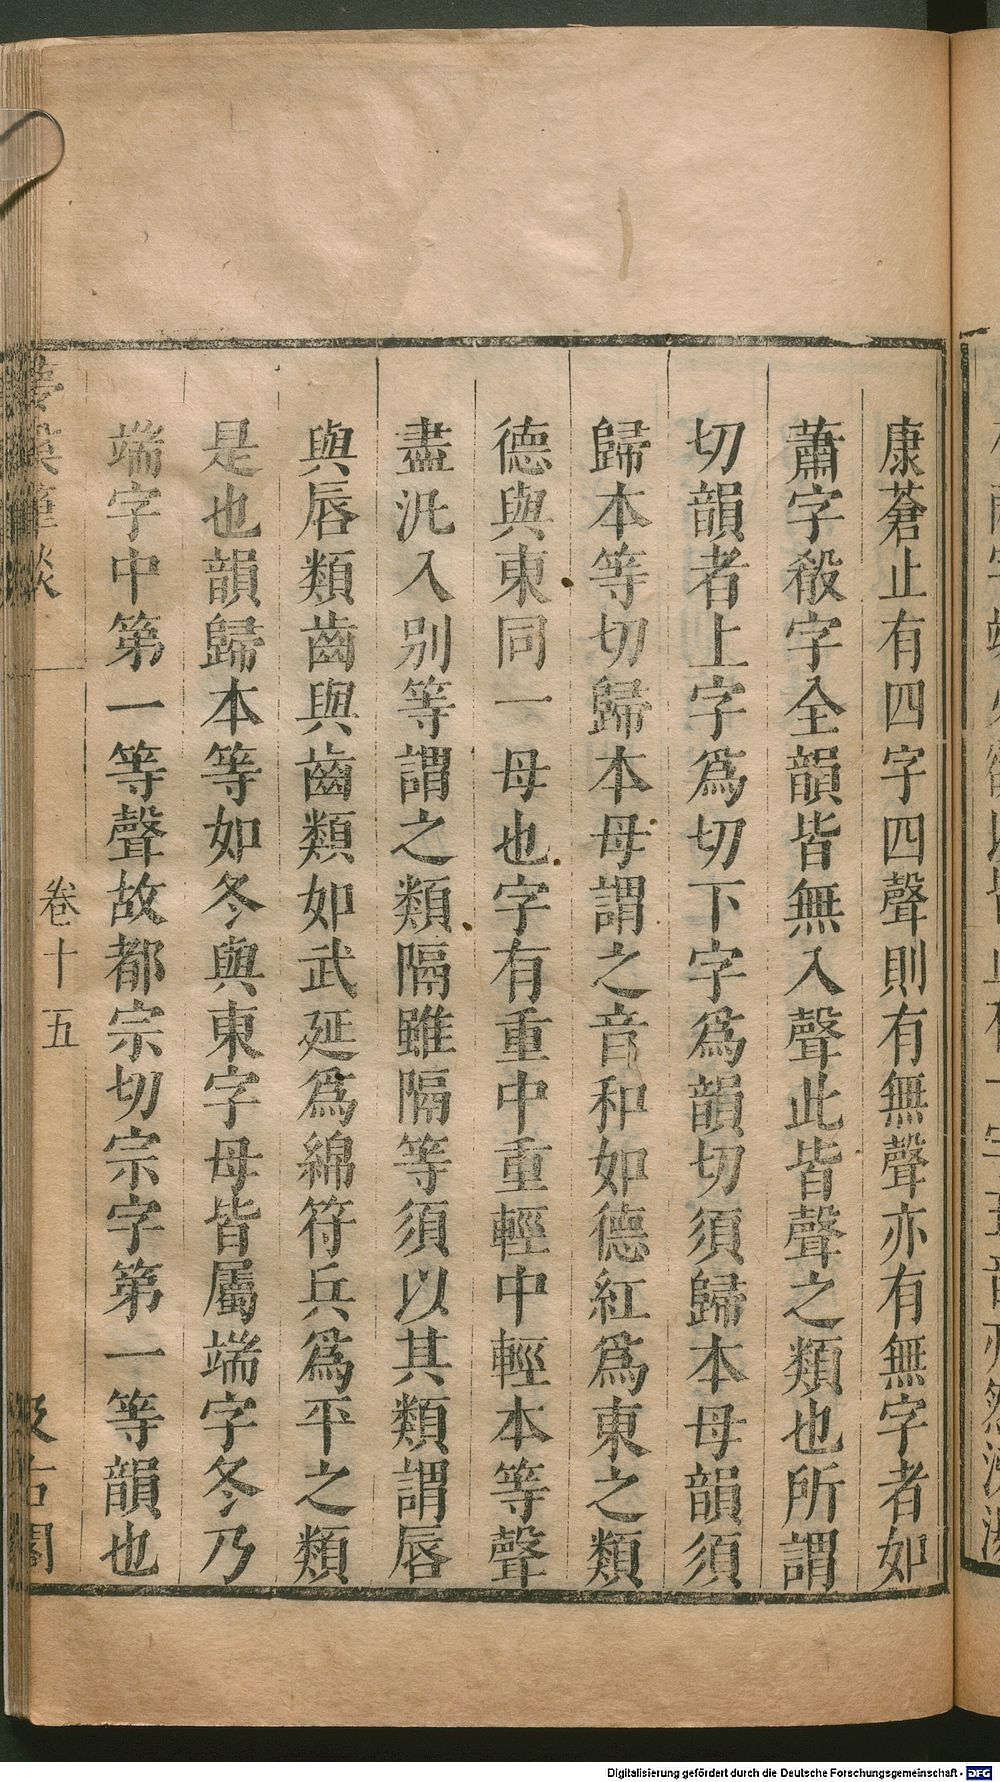 康蒼止有四字四聲則有無聲亦有無字者如
蕭字殽字全韻皆無入聲此皆聲之類也所謂
切韻者上字爲切下字爲韻切須歸本母韻須
歸本等切歸本母謂之音和如德紅爲東之類
德與東同一母也字有重中重輕中輕本等聲
盡汎入别等謂之類隔雖隔等須以其類謂唇
與唇類齒與齒類如武延爲綿符兵爲平之類
是也韻歸本等如冬與東字母皆屬端字冬乃
端字中第一等聲故都宗切宗字第一等韻也
卷十五
Digitalisierung gefördert durch die Deutsche Forschungsgemeinschaft - DFG